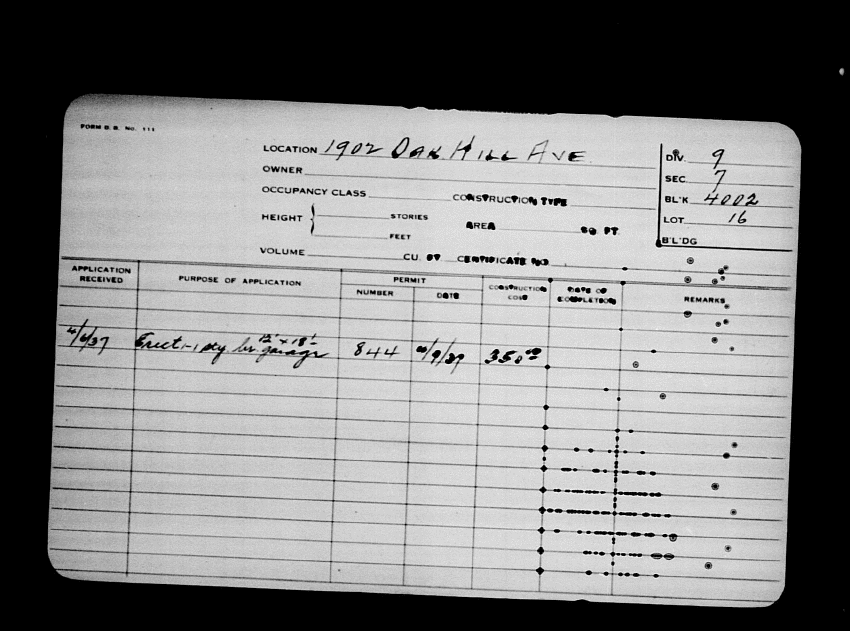 FORM B. B. No. 111
LOCATION 1902 OAK HILL AVE
DIV. 9
OWNER
SEC. 7
OCCUPANCY CLASS CONSTRUCTION TYPE
BL'K 4002
HEIGHT STORIES AREA SQ FT.
LOT 16
FEET
B'L'DG
VOLUME CU FT CERTIFICATE NO
APPLICATION RECEIVED PURPOSE OF APPLICATION PERMIT CONSTRUCTION COST DATE OF COMPLETION REMARKS
NUMBER DATE
12' x 18'
4/6/37 Erect 1 sty br. garage 844 4/9/37 350.00